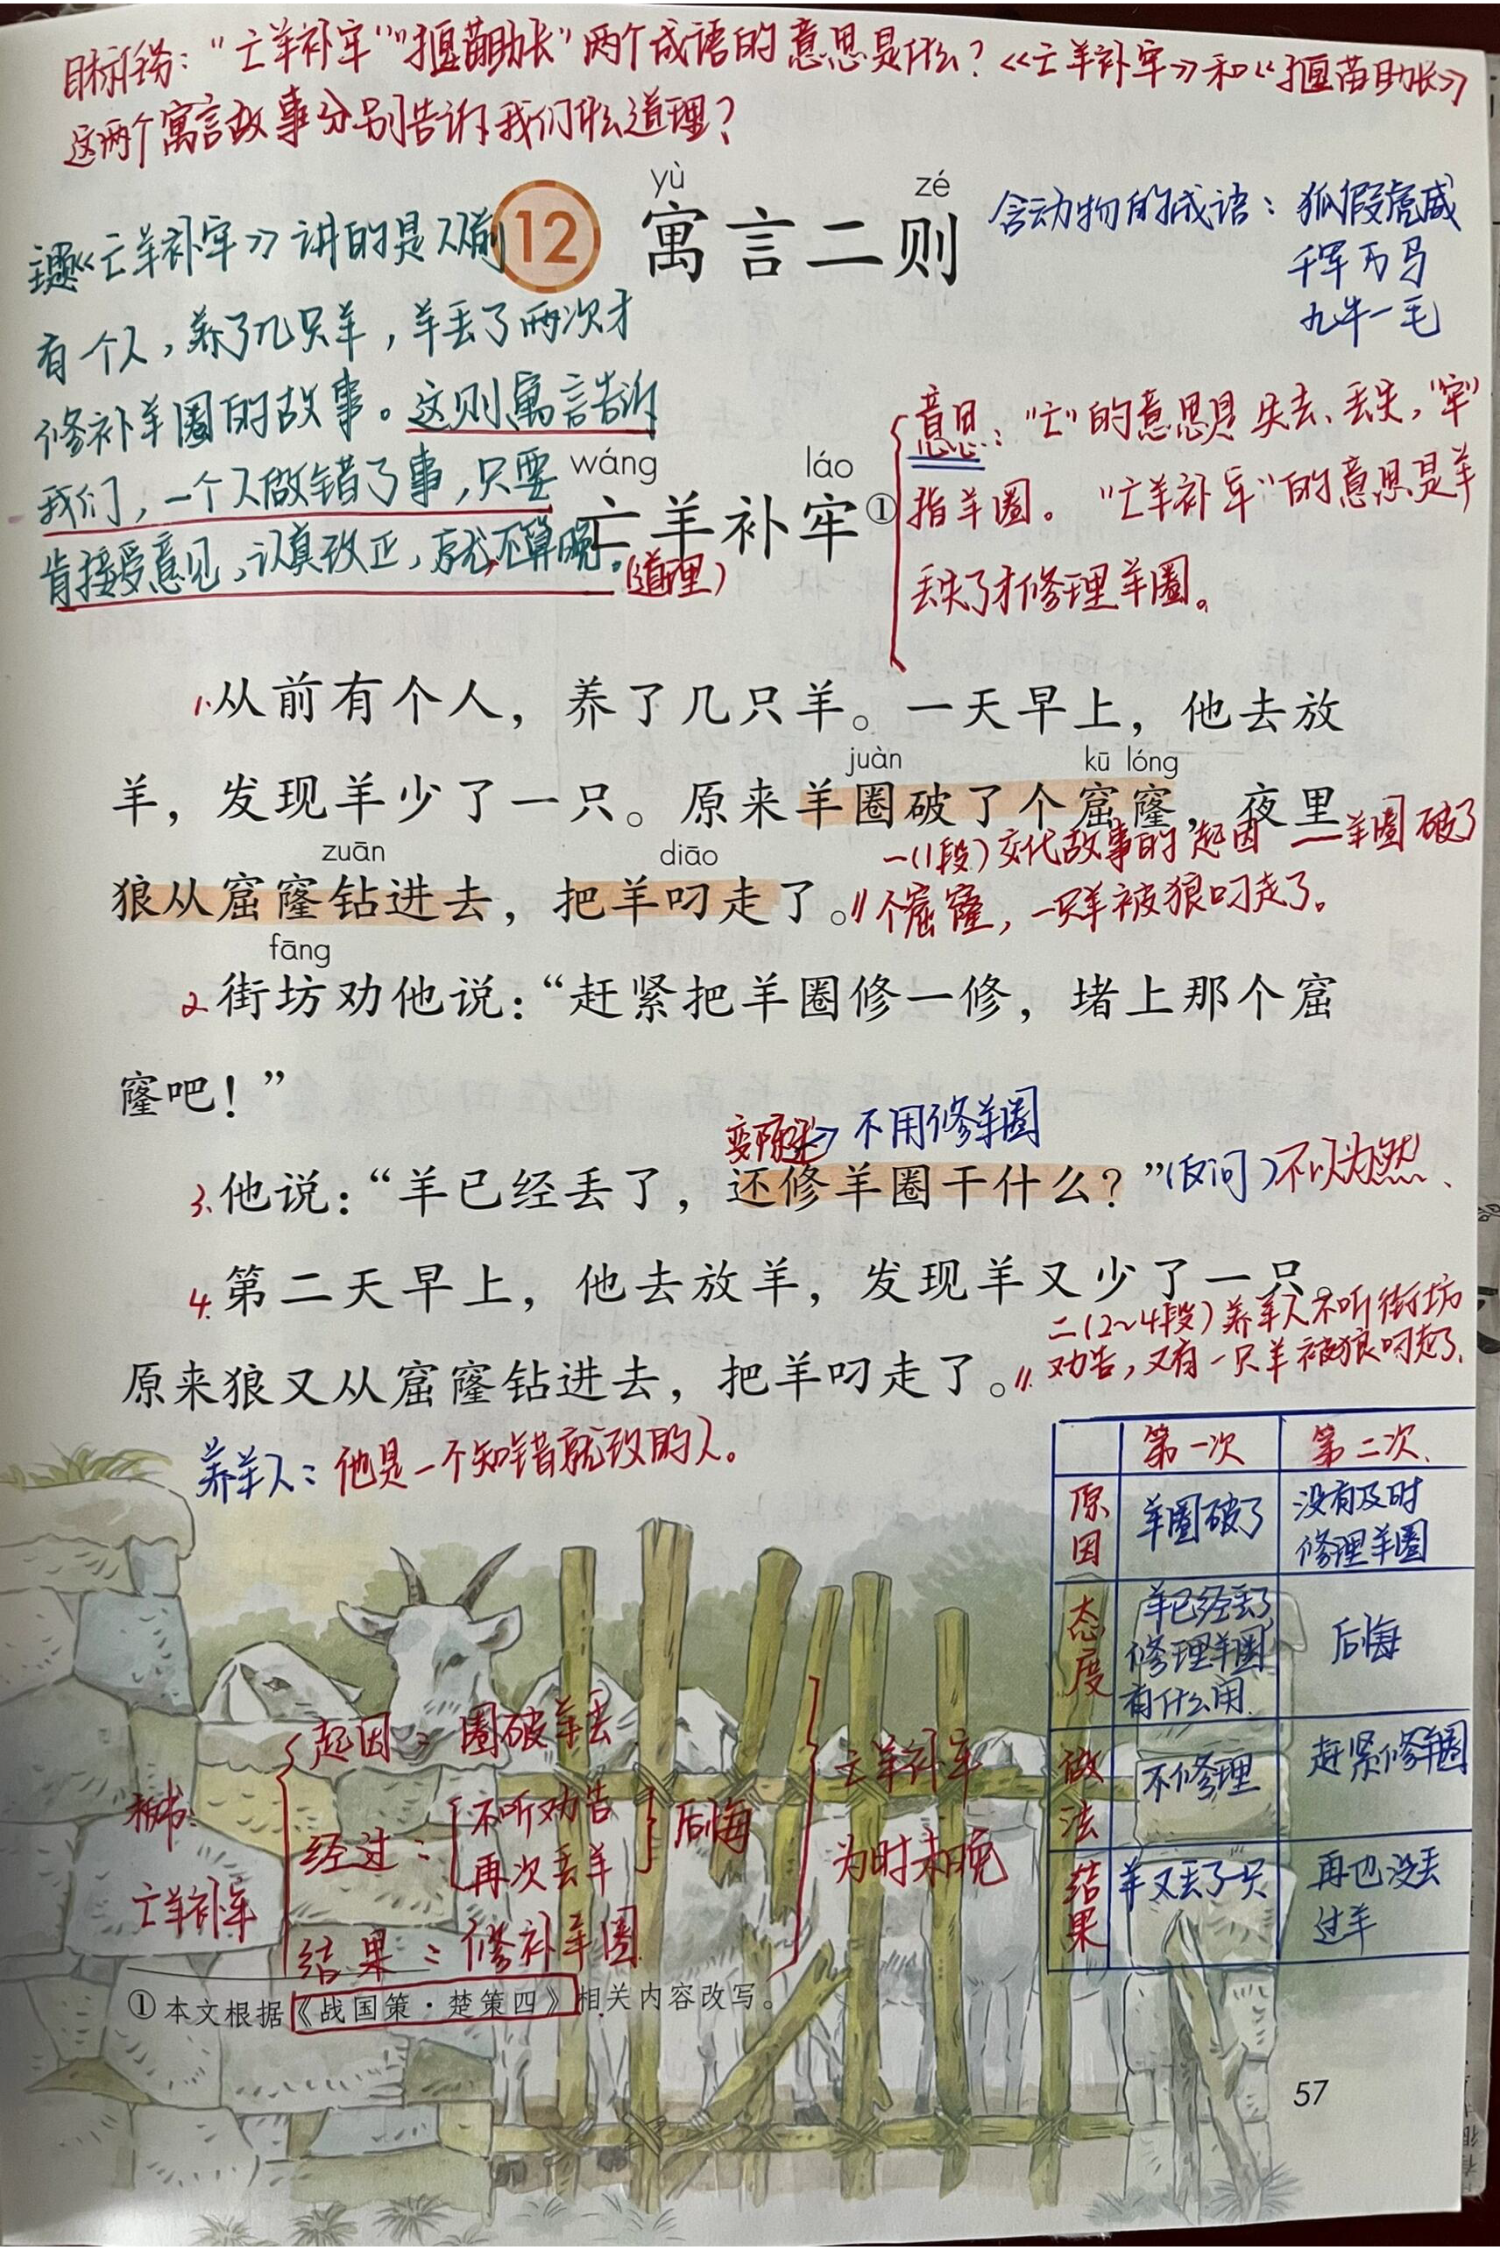 目标任务：“亡羊补牢”“揠苗助长”两个成语的意思是什么？《亡羊补牢》和《揠苗助长》
这两个寓言故事分别告诉我们什么道理？
yù zé
12 寓言二则
含动物的成语：狐假虎威
千军万马
九牛一毛
主题：《亡羊补牢》讲的是从前
有一个人，养了几只羊，羊丢了两次才
修补羊圈的故事。这则寓言告诉
我们，一个人做错了事，只要
肯接受意见，认真改正，就不算晚。（道理）
wáng láo
亡羊补牢①
意思：“亡”的意思是失去、丢失，“牢”
指羊圈。“亡羊补牢”的意思是羊
丢失了才修理羊圈。
1.从前有个人，养了几只羊。一天早上，他去放
juàn kū lóng
羊，发现羊少了一只。原来羊圈破了个窟窿，夜里
zuān diāo
狼从窟窿钻进去，把羊叼走了。∥
一（1段）交代故事的起因——羊圈破了
个窟窿，一只羊被狼叼走了。
fāng
2.街坊劝他说：“赶紧把羊圈修一修，堵上那个窟
窿吧！”
变陈述→不用修羊圈
3.他说：“羊已经丢了，还修羊圈干什么？”（反问）不以为然、
4.第二天早上，他去放羊，发现羊又少了一只。
原来狼又从窟窿钻进去，把羊叼走了。∥
二（2~4段）养羊人不听街坊
劝告，又有一只羊被狼叼走了。
养羊人：他是一个知错就改的人。
第一次 第二次
原因 羊圈破了 没有及时修理羊圈
态度 羊已经丢了，修理羊圈有什么用. 后悔
做法 不修理 赶紧修羊圈
结果 羊又丢了一只 再也没丢过羊
板书：
亡羊补牢
起因：圈破羊丢
经过：不听劝告
再次丢羊
后悔
结果：修补羊圈
亡羊补牢
为时未晚
①本文根据《战国策·楚策四》相关内容改写。
57